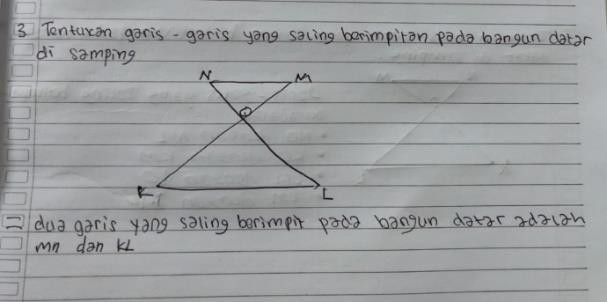 3 Tentukan garis - garis yang saling berimpitan pada bangun datar
di samping
N M
O
K L
= dua garis yang saling berimpit pada bangun datar adalah
mn dan KL